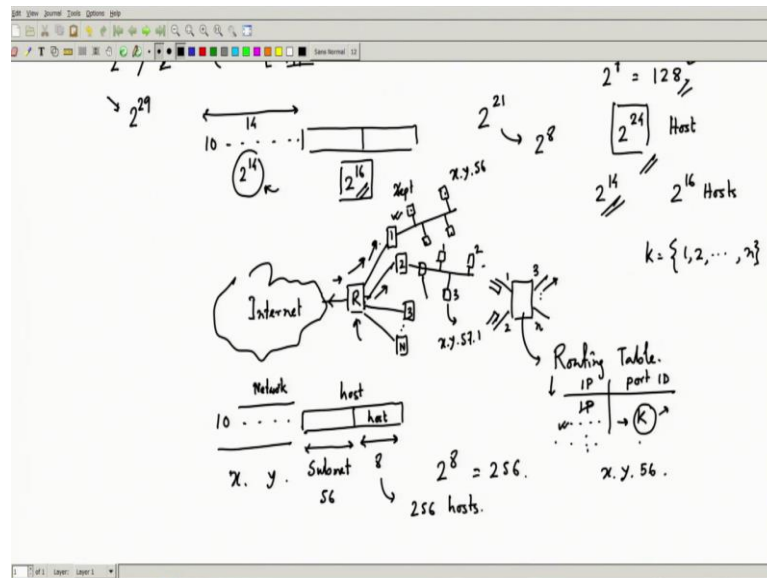 Edit View Journal Tools Options Help
Sans Normal 12
2^7 = 128
→ 2^29
14
10 . . . . . .
2^14
2^16
2^21
→ 2^8
2^24 Host
2^14 2^16 Hosts
x.y.56
k = {1,2, ..., n}
Internet
R
1
2
3
N
2
3
x.y.57.1
1 3
2 n
Routing Table.
IP port ID
IP
K
Network host
10 . . . . host
x. y. Subnet 8
56
2^8 = 256.
256 hosts.
x.y.56.
1 of 1 Layer: Layer 1